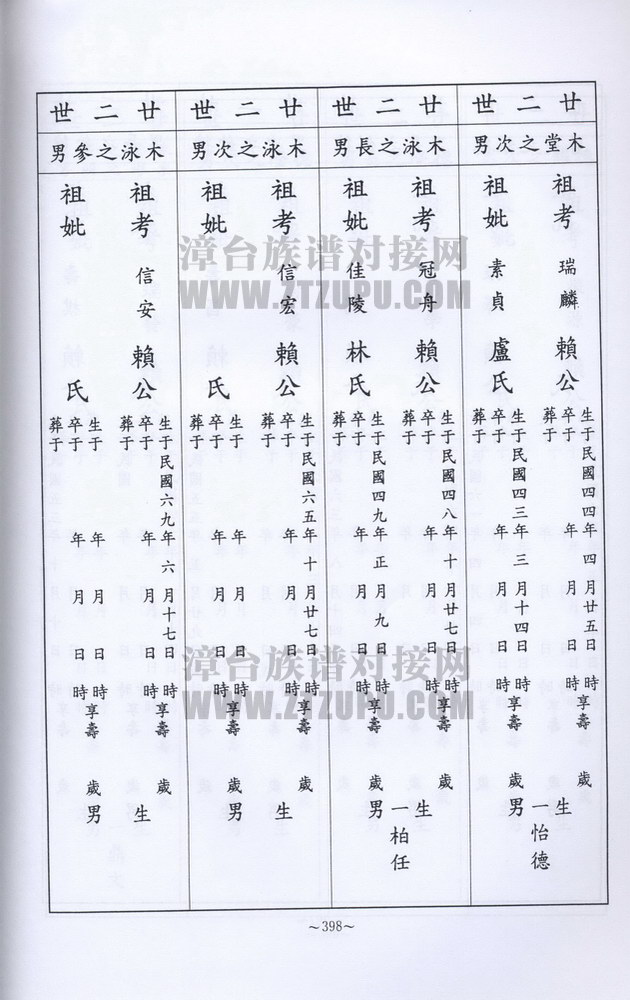 廿二世
木堂之次男
祖考 瑞麟 賴公
生于民國四四年四月廿五日時享壽歲
卒于年月日時
葬于
祖妣 素貞 盧氏
生于民國四三年三月十四日時享壽歲
卒于年月日時
葬于
生一男
怡德
廿二世
木泳之長男
祖考 冠舟 賴公
生于民國四八年十月廿七日時享壽歲
卒于年月日時
葬于
祖妣 佳陵 林氏
生于民國四九年正月九日時享壽歲
卒于年月日時
葬于
生一男
柏任
廿二世
木泳之次男
祖考 信宏 賴公
生于民國六五年十月廿七日時享壽歲
卒于年月日時
葬于
祖妣 氏
生于年月日時享壽歲
卒于年月日時
葬于
生男
廿二世
木泳之參男
祖考 信安 賴公
生于民國六九年六月十七日時享壽歲
卒于年月日時
葬于
祖妣 氏
生于年月日時享壽歲
卒于年月日時
葬于
生男
~398~
漳台族谱对接网
WWW.ZTZUPU.COM
漳台族谱对接网
WWW.ZTZUPU.COM